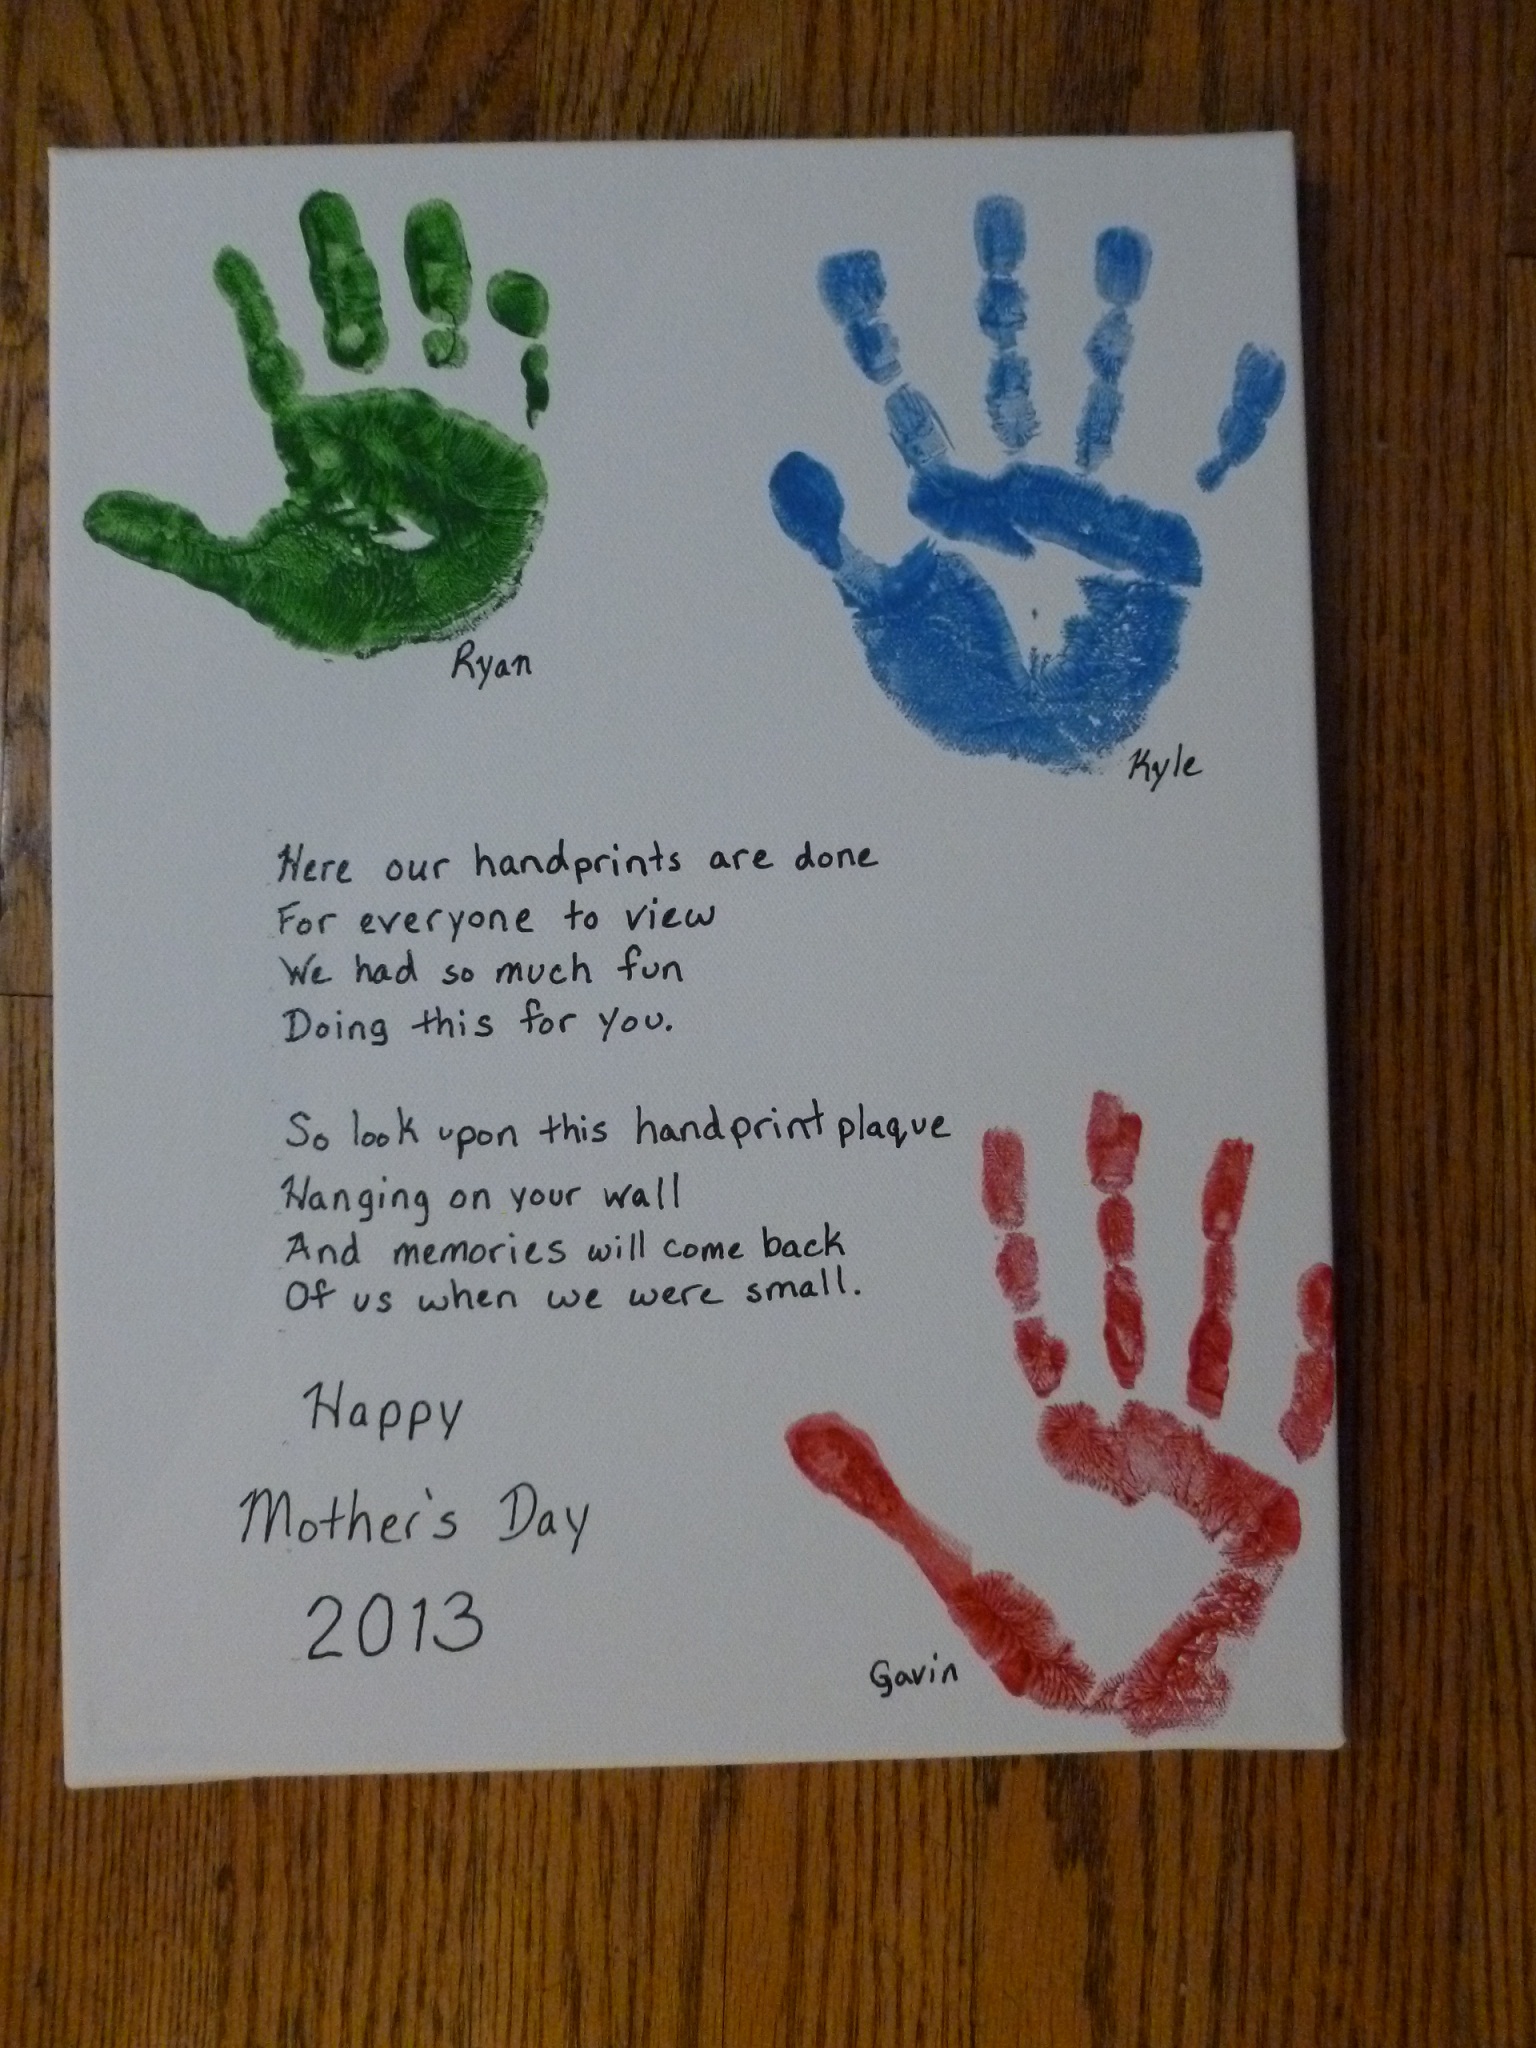 Ryan
Kyle
Here our handprints are done
For everyone to view
We had so much fun
Doing this for you.
So look upon this handprint plaque
Hanging on your wall
And memories will come back
Of us when we were small.
Happy
Mother's Day
2013
Gavin